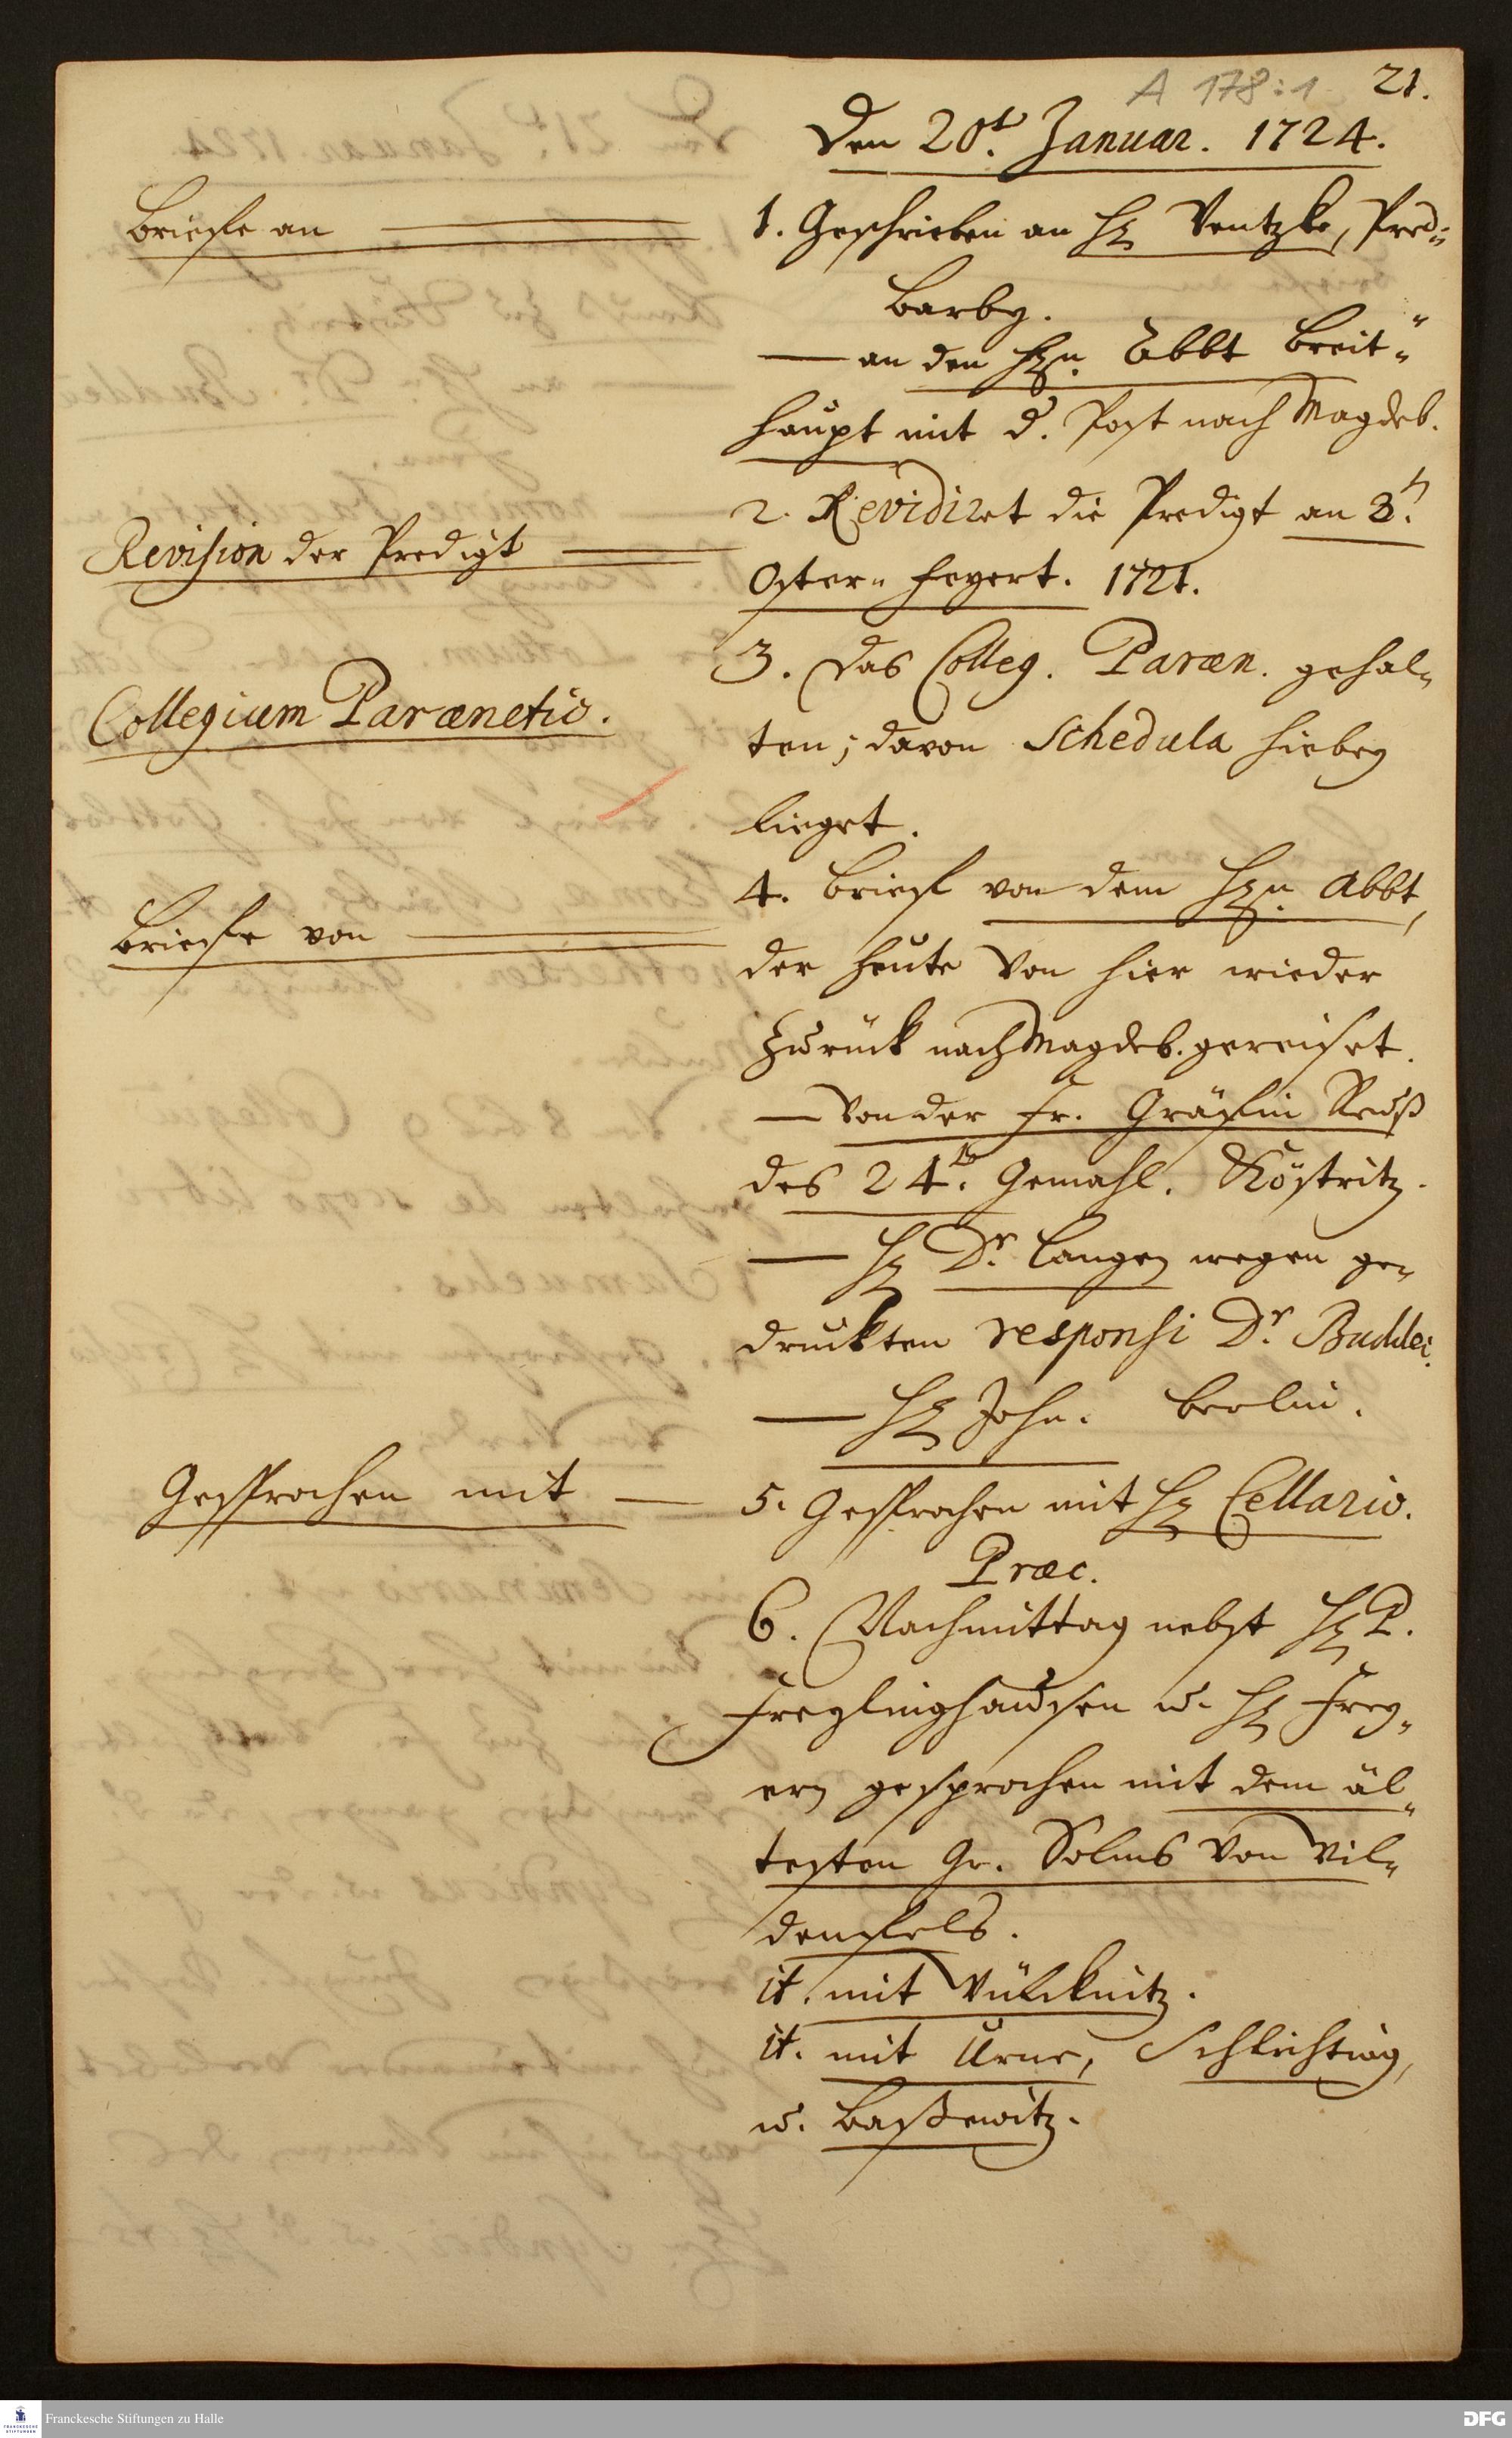 A 178:1 21.
Den 20t. Januar. 1724.
Briefe an
1. Geschrieben an H. Ventzke, Pred:
Barby.
— an den H.n Abbt Breit-
haupt mit d. Post nach Magdeb.
Revision der Predigt
2. Revidiret die Predigt am 3.
Oster-Feyert. 1721.
Collegium Parænetic.
3. Das Colleg. Paræn. gehal-
ten; davon Schedula hiebey
lieget.
Briefe von
4. Brief von dem H.n Abbt,
der heute von hier wieder
zurück nach Magdeb. gereiset.
— von der Fr. Gräfin Reuß
des 24. Gemahl. Köstritz.
— H. Dr. Langen wegen ge-
druckten responsi Dr. Buddei.
— H. John. Berlin.
Gesprochen mit
5. Gesprochen mit H. Cellario.
Præc.
6. Nachmittag nebst H. P.
Freylinghausen u. H. Frey-
ern gesprochen mit dem äl-
testen Gr. Solms von Wil-
denfels.
it. mit Wülcknitz.
it. mit Urne, Schlichting,
u. Baßewitz.
FRANCKESCHE STIFTUNGEN
Franckesche Stiftungen zu Halle
DFG